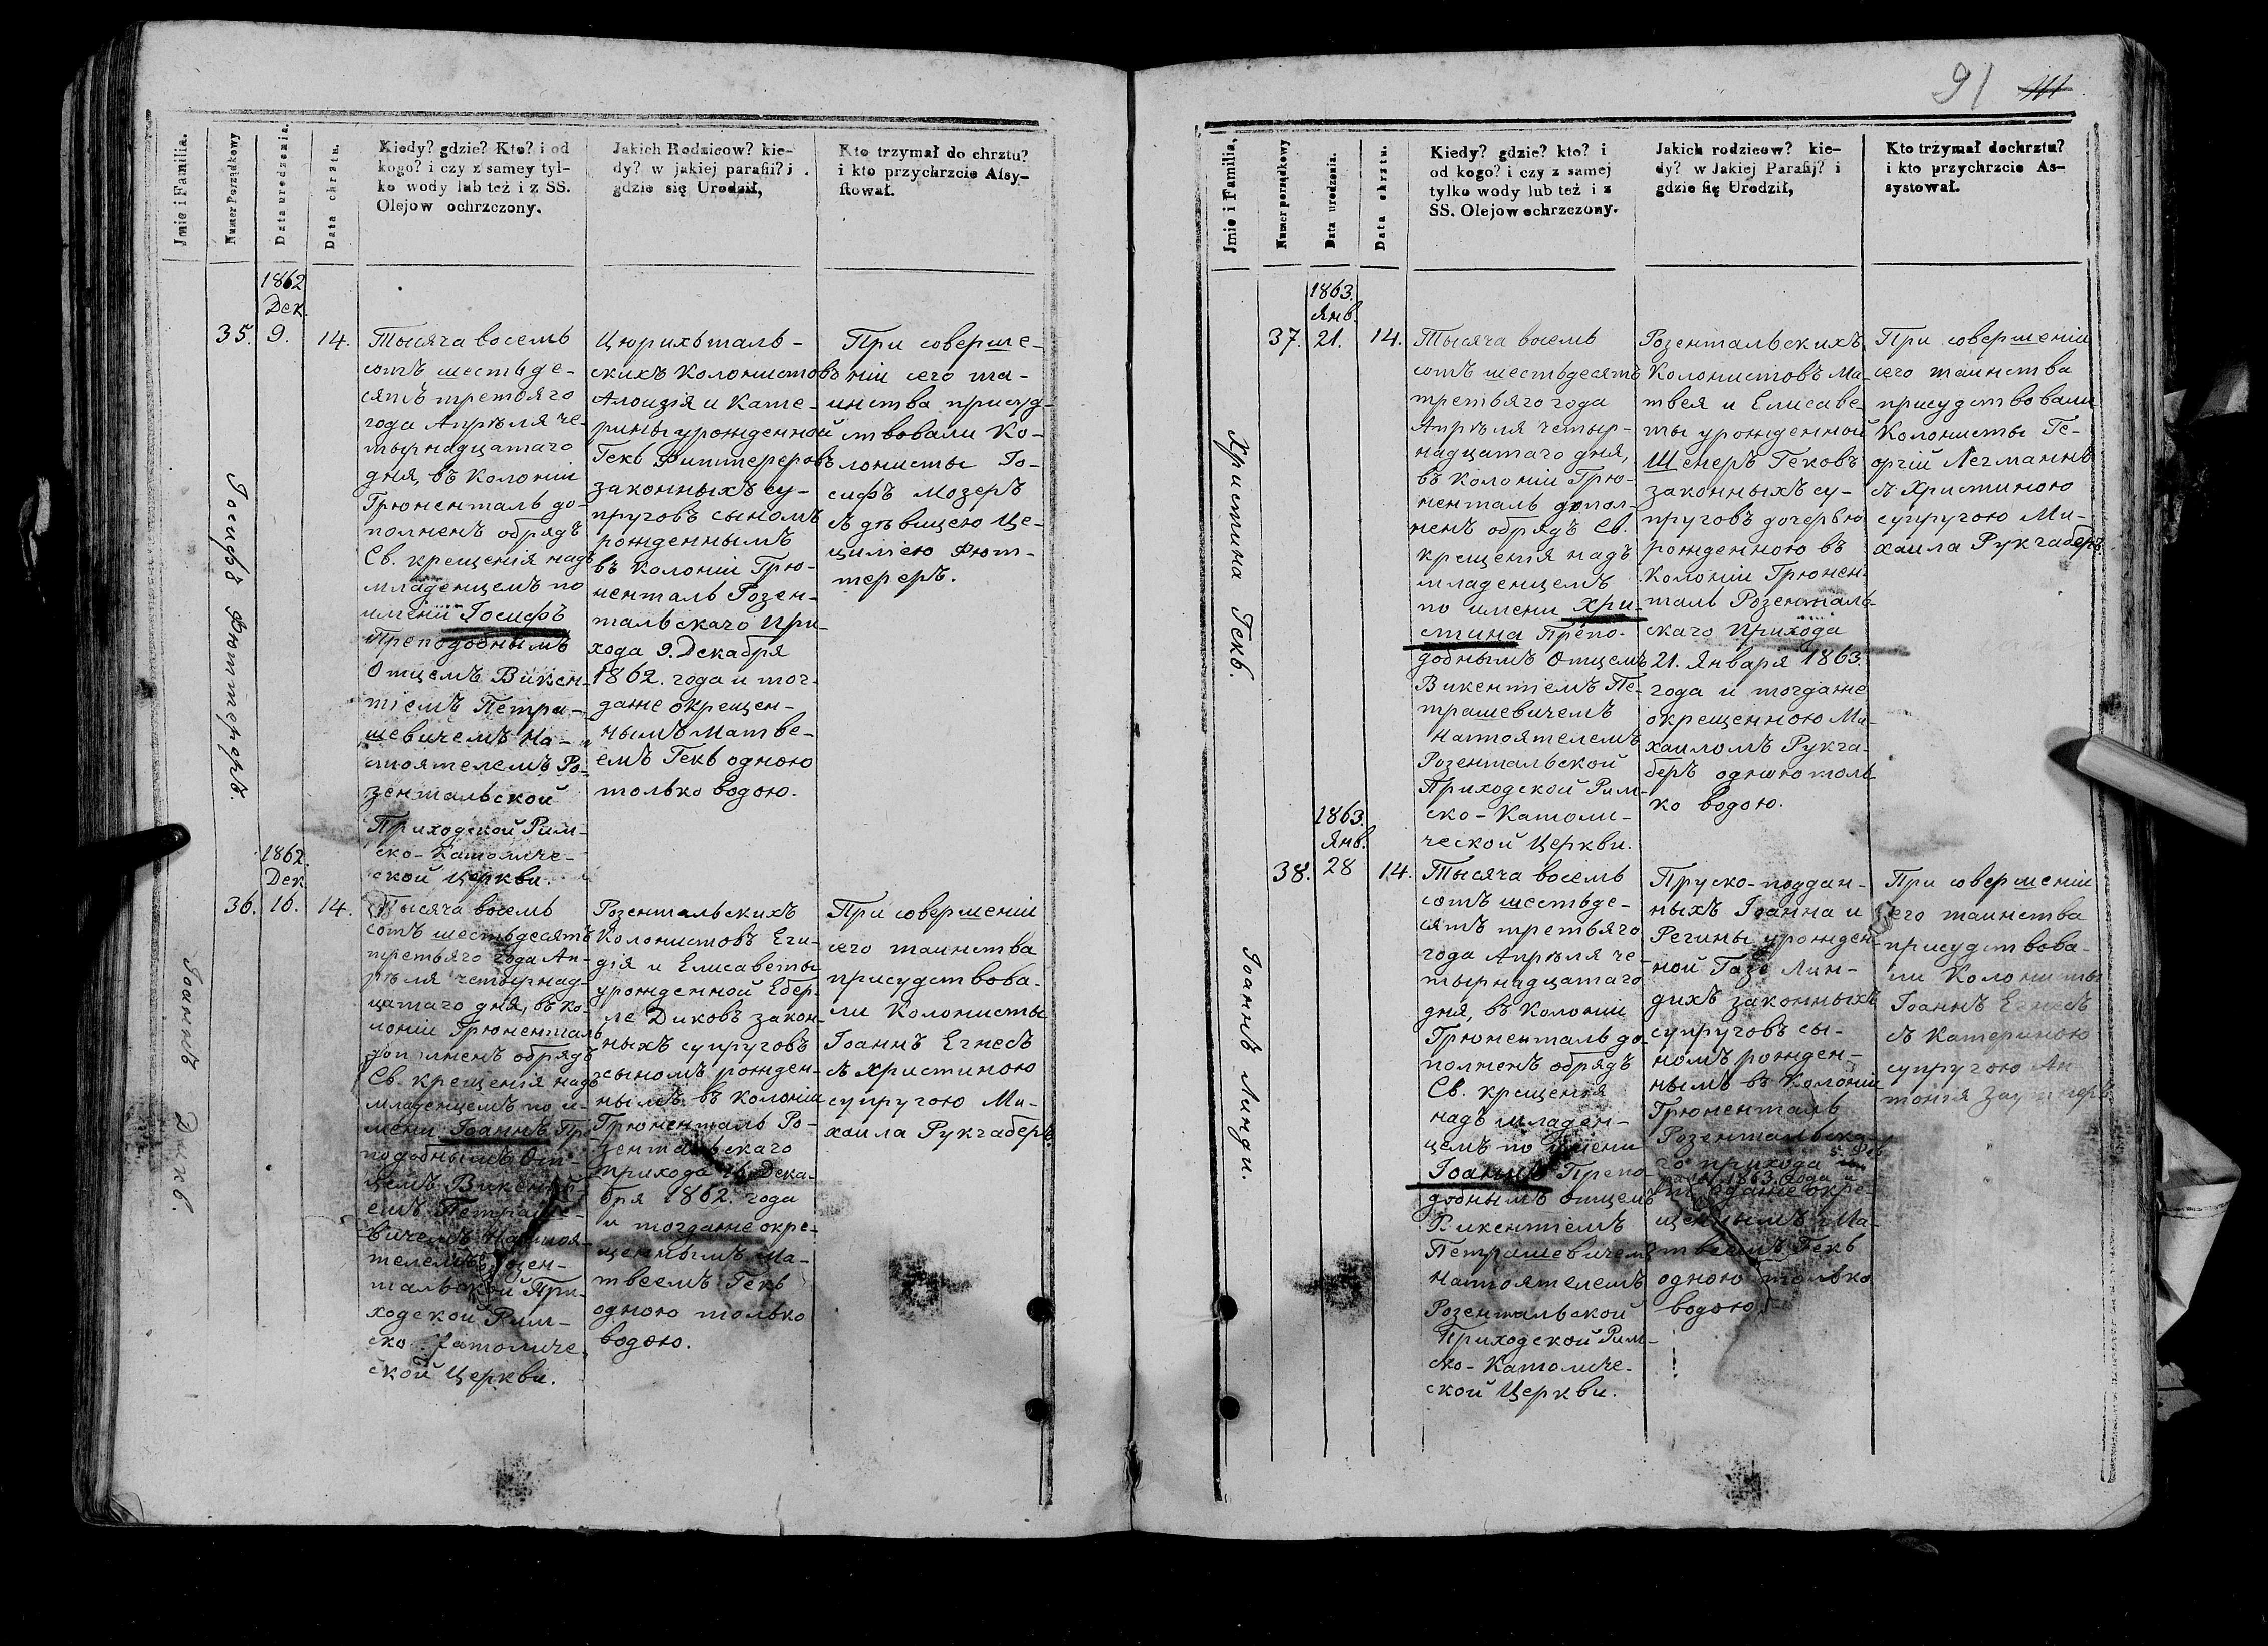 Jmie i Familia.
Numer Porządkowy
Data urodzenia.
Data chrztu.
Kiedy? gdzie? Kto? i od
kogo? i czy z samey tyl-
ko wody lub też i z SS.
Olejow ochrzczony.
Jakich Rodzicow? kie-
dy? w jakiej parafii? i
gdzie się Urodził,
Kto trzymał do chrztu?
i kto przychrzcie Afsy-
ftował.
1862
Дек.
35.
9.
14.
Іосифъ Фюттереръ.
Тысяча восемь
сотъ шестьде-
сятъ третьяго
года Апрѣля че-
тырнадцатаго
дня, въ Колоніи
Грюненталь до-
полненъ обрядъ
Св. крещенія надъ
младенцемъ по
имени Іосифъ
Преподобнымъ
Отцемъ Викен-
тіемъ Петра-
шевичемъ На-
стоятелемъ Ро-
зентальской
Приходской Рим-
ско-Католиче-
ской Церкви.
Цюрихталь-
скихъ Колонистовъ
Алоизія и Кате-
рины урожденной
Гекъ Фиттереровъ
законныхъ су-
пруговъ сыномъ
рожденнымъ
въ Колоніи Грю-
ненталь Розен-
тальскаго При-
хода 9. Декабря
1862. года и тог-
даже окрещен-
нымъ Матве-
емъ Гекъ одною
только водою.
При соверше-
ніи сего та-
инства присуд-
ствовали Ко-
лонисты Іо-
сифъ Мозеръ
съ дѣвицею Це-
циліею Фют-
тереръ.
1862.
Дек.
36.
16.
14.
Іоаннъ Дикъ.
Тысяча восемь
сотъ шестьдесятъ
третьяго года Ап-
рѣля четырнад-
цатаго дня, въ Ко-
лоніи Грюненталь
дополненъ обрядъ
Св. крещенія надъ
младенцемъ по и-
мени Іоаннъ Пре-
подобнымъ От-
цемъ Викенті-
емъ Петраше-
вичемъ Настоя-
телемъ Розен-
тальской При-
ходской Рим-
ско-Католиче-
ской Церкви.
Розентальскихъ
Колонистовъ Еги-
дія и Елисаветы
урожденной Ебер-
ле Диковъ закон-
ныхъ супруговъ
сыномъ рожден-
нымъ въ Колоніи
Грюненталь Ро-
зентальскаго
прихода 16. Дека-
бря 1862. года
и тогдаже окре-
щеннымъ Ма-
твеемъ Гекъ
одною только
водою.
При совершеніи
сего таинства
присудствова-
ли Колонисты
Іоаннъ Егнесъ
съ Христиною
супругою Ми-
хаила Рукгаберъ.
91
Jmie i Familia,
Numer porządkowy
Data urodzenia.
Data chrztu.
Kiedy? gdzie? kto? i
od kogo? i czy z samej
tylko wody lub też i z
SS. Olejow ochrzczony.
Jakich rodzicow? kie-
dy? w Jakiej Parafij? i
gdzie fię Urodził,
Kto trzymał dochrztu?
i kto przychrzcie As-
systował.
1863.
Янв.
37.
21.
14.
Христина Гекъ.
Тысяча восемь
сотъ шестьдесятъ
третьяго года
Апрѣля четыр-
надцатаго дня,
въ Колоніи Грю-
ненталь допол-
ненъ обрядъ Св.
крещенія надъ
младенцемъ
по имени Хри-
стина Препо-
добнымъ Отцемъ
Викентіемъ Пе-
трашевичемъ
Настоятелемъ
Розентальской
Приходской Рим-
ско-Католи-
ческой Церкви.
Розентальскихъ
Колонистовъ Ма-
твея и Елисаве-
ты урожденной
Шенеръ Гековъ
законныхъ су-
пруговъ дочерью
рожденною въ
Колоніи Грюнен-
таль Розенталь-
скаго Прихода
21. Января 1863.
года и тогдаже
окрещенною Ми-
хаиломъ Рукга-
беръ одною толь-
ко водою.
При совершеніи
сего таинства
присудствовали
Колонисты Ге-
оргій Легманнъ
съ Христиною
супругою Ми-
хаила Рукгаберъ.
1863.
Янв.
38.
28
14.
Іоаннъ Линди.
Тысяча восемь
сотъ шестьде-
сятъ третьяго
года Апрѣля че-
тырнадцатаго
дня, въ Колоніи
Грюненталь до-
полненъ обрядъ
Св. крещенія
надъ младен-
цемъ по имени
Іоаннъ Препо-
добнымъ Отцемъ
Викентіемъ
Петрашевичемъ
Настоятелемъ
Розентальской
Приходской Рим-
ско-Католиче-
ской Церкви.
Пруско-поддан-
ныхъ Іоанна и
Регины урожден-
ной Лин-
дихъ законныхъ
супруговъ сы-
номъ рожден-
нымъ въ Колоніи
Грюненталь
Розентальска-
го прихода
1863. года и
тогдаже окре-
щеннымъ Ма-
твеемъ Гекъ
одною только
водою.
При совершеніи
сего таинства
присудствова-
ли Колонисты
Іоаннъ Егнесъ
съ Катериною
супругою Ан-
тонія